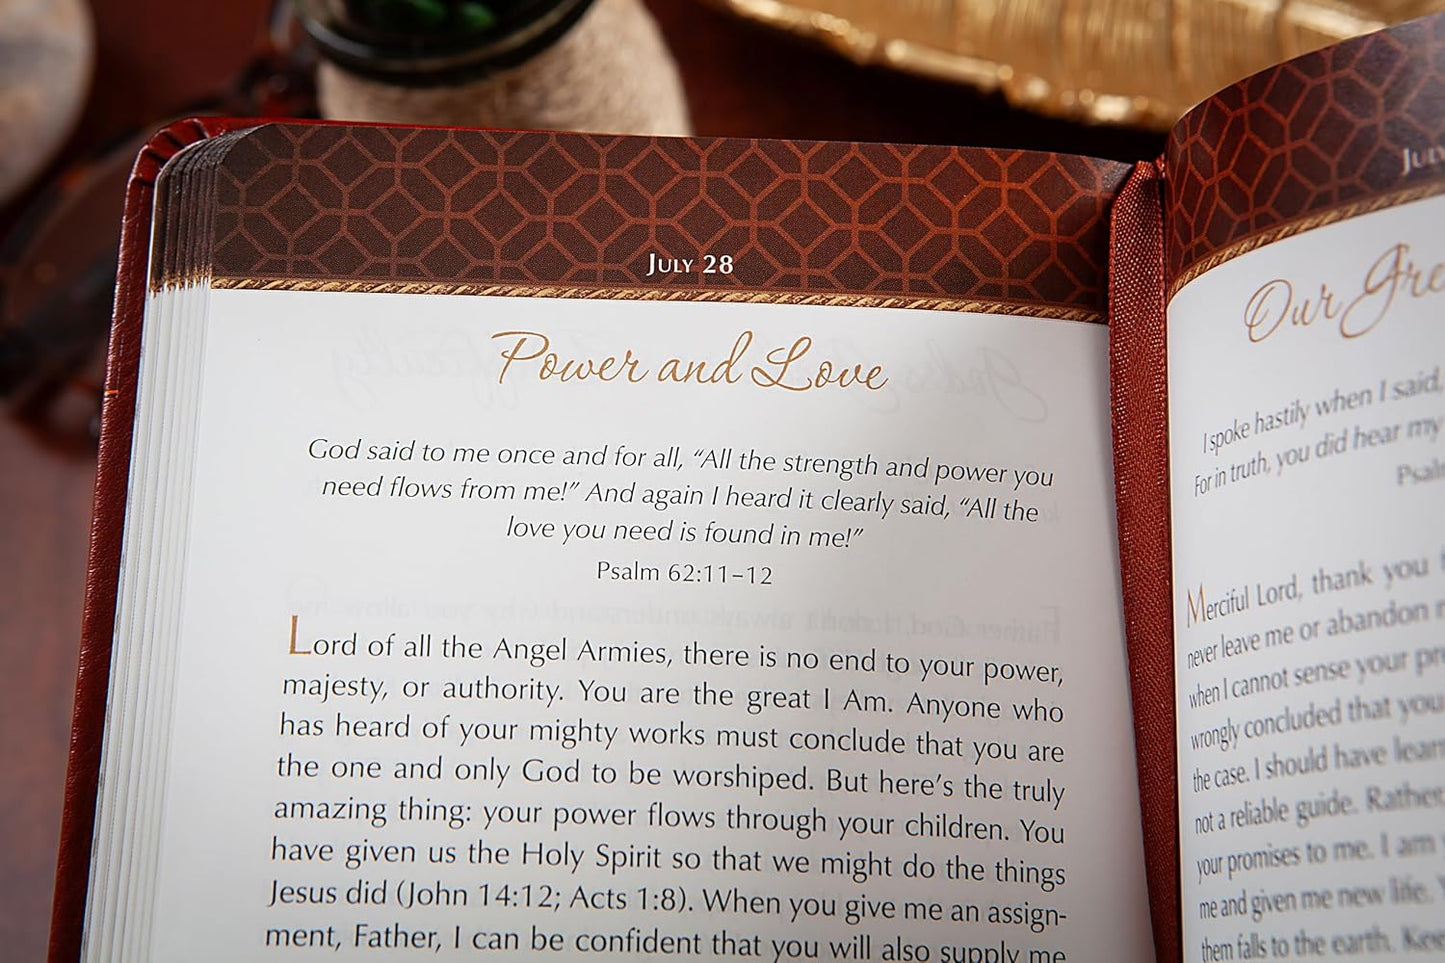 July 28
Power and Love
God said to me once and for all, “All the strength and power you
need flows from me!” And again I heard it clearly said, “All the
love you need is found in me!”
Psalm 62:11–12
Lord of all the Angel Armies, there is no end to your power,
majesty, or authority. You are the great I Am. Anyone who
has heard of your mighty works must conclude that you are
the one and only God to be worshiped. But here’s the truly
amazing thing: your power flows through your children. You
have given us the Holy Spirit so that we might do the things
Jesus did (John 14:12; Acts 1:8). When you give me an assign-
ment, Father, I can be confident that you will also supply me
July
Our Gre
I spoke hastily when I said,
For in truth, you did hear my
Psal
Merciful Lord, thank you
never leave me or abandon
when I cannot sense your pr
wrongly concluded that you
the case. I should have lear
not a reliable guide. Rather
your promises to me. I am
me and given me new life.
them falls to the earth. Kee